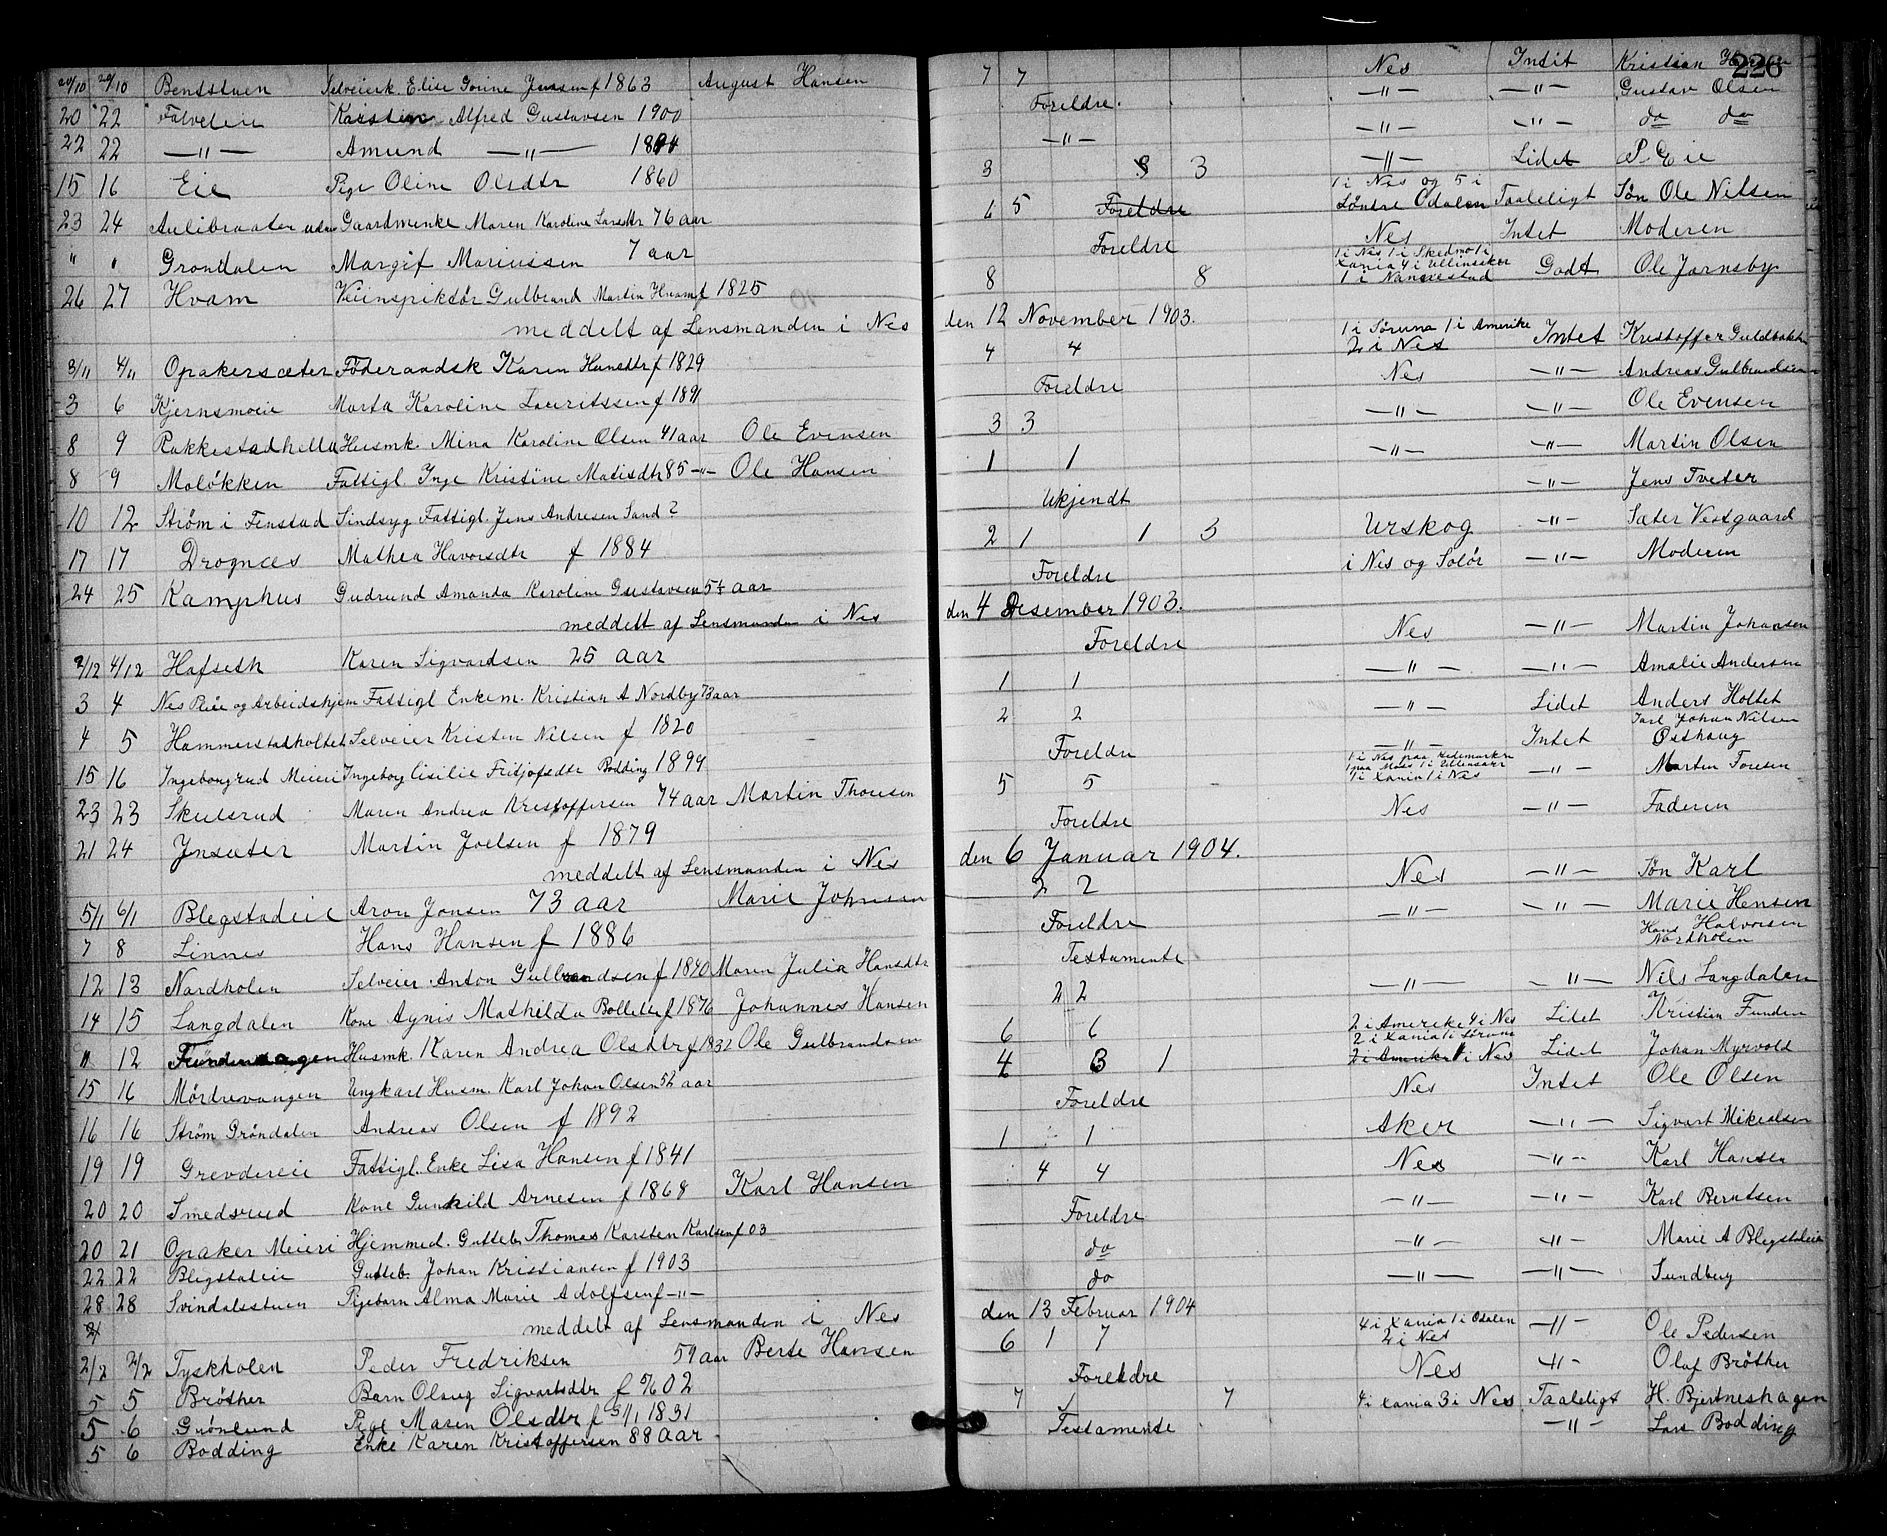 226
20/10 20/10 Bendstuen Selveierk. Elise Gorine Jensen f 1863 August Hansen 7 7 Nes Intit Kristian
20 22 Karsten Alfred Gustavsen 1900 Foreldre. —"— —"— Gustav Olsen
22 22 —"— Amund —"— —"— —"— —"— do do
15 16 Eie Pige Oline Olsdtr 1860 3 3 —"— Lidet P Eie
23 24 Gaardmenke Maren Karoline Larsdtr 76 aar 6 5 Foreldre 1 i Nes og 5 i Söndre Odalen Taaleligt Sön Ole Nilsen
" " Grondalen Margit Mariussen 7 aar Foreldre Nes Intet Moderen
26 27 Hvam Veiinspiktör Gulbrand Martin Hvam f 1825 8 8 1 i Nes 1 i Skedmo 1 i Xania 4 i Ullinsaker 1 i Nannestad Godt Ole Jarnsby
meddelt af Lensmanden i Nes den 12 November 1903.
3/11 4/11 Opakersæter Föderaadsk Karen Hansdtr f 1829 4 4 1 i Sörum 1 i Amerike 2 i Nes Intet Kristoffer
3 6 Kjernsmoeie Marta Karoline Lauritssen f 1891 Foreldre Nes —"— Andreas Gulbrandsen
8 9 Rakkestadhella Husmk. Mina Karoline Olsen 41 aar Ole Evensen 3 3 —"— —"— Ole Evensen
8 9 Molökken Fattigl Inge Kristine Matisdtr 85 —"— Ole Hansen 1 1 —"— —"— Martin Olsen
10 12 Ström i Fenstad Sindsyg Fattigl. Jens Andresen Sand ? Ukjendt —"— Jens Tveter
17 17 Drognæs Mathea Havorsdtr f 1884 2 1 1 3 Urskog —"— Sæter Vestgaard
24 25 Kamphus Gudrund Amanda Karoline Gustavsen 5 aar Foreldre i Nes og Solör —"— Moderen
meddelt af Lensmanden i Nes den 4 Desember 1903.
2/12 4/12 Hafseth Karen Sigvardsen 25 aar Foreldre Nes —"— Martin Johansen
3 4 Nes Pleie og Arbeidshjem Fattigl Enkem. Kristian A Nordby 73 aar 1 1 —"— —"— Amalie Andersen
4 5 Hammerstadholtet Selveier Kristen Nilsen f 1820 2 2 —"— Lidet Anders Holtet
15 16 Ingeborgrud Meieri Ingeborg Cisilie Fritjofsdtr Bodding 1899 Foreldre —"— Intet Karl Johan Nilsen Östhaug
23 23 Skulsrud Maren Andrea Kristoffersen 74 aar Martin Thoresen 5 5 1 i Nes 1 paa Hedemarken 1 paa Moss 1 i Ullensaker 1 i Xania 1 i Nes —"— Martin Toresen
21 24 Ynsæter Martin Joelsen f 1879 Foreldre Nes —"— Faderen
meddelt af Lensmanden i Nes den 6 Januar 1904.
5/1 6/1 Blegstadeie Aron Jonsen 73 aar Marie Johnsen 2 2 Nes —"— Sön Karl
7 8 Linnes Hans Hansen f 1886 Foreldre —"— —"— Marie Hensen
12 13 Nordholen Selveier Anton Gulbrandsen f 1840 Maren Julia Hansdtr Testamente Hans Halvorsen Nordholen
14 15 Langdalen Kone Agnis Mathilda Bolletta f 1876 Johannes Hansen 2 2 —"— —"— Nils Langdalen
11 12 Fundenhagen Husmk. Karen Andrea Olsdtr f 1832 Ole Gulbrandsen 6 6 2 i Amerike 4 i Nes Lidet Kristian Funden
15 16 Mördrevangen Ungkarl Husm. Karl Johan Olsen 52 aar 4 3 1 2 i Xania 1 i Sörum 2 i Amerike 1 i Nes Lidet Johan Myrvold
16 16 Ström Gröndalen Andreas Olsen f 1892 Foreldre Nes Intet Ole Olsen
19 19 Grevdereie Fattigl. Enke Lisa Hansen f 1841 1 1 Aker —"— Sigvart Mikealsen
20 20 Smedsrud Kone Gunhild Arnesen f 1868 Karl Hansen 4 4 Nes —"— Karl Hansen
20 21 Opaker Meieri Hjemmed. Gutteb. Thomas Karsten Karlsen f 03 Foreldre —"— —"— Karl Berntsen
22 22 Blegstadeie Gutteb. Johan Kristiansen f 1903 do —"— —"— Marie A Blegstadeie
28 28 Svindalsstuen Pigebarn Alma Marie Adolfsen f —"— do —"— —"— Sundbug
meddelt af Lensmanden i Nes den 13 Februar 1904
2/2 2/2 Tyskholen Peder Fredriksen 59 aar Berte Hansen 6 1 7 4 i Xania 1 i Odalen 2 i Nes —"— Ole Pedersen
5 5 Bröther Barn Olaug Sigvartsdtr f 02 Foreldre Nes —"— Olaf Bröther
5 6 Grönlund Pige Maren Olsdtr f 5/11 1831 7 7 4 i Xania 3 i Nes Taaleligt H. Bjertneshagen
5 6 Bodding Enke Karen Kristoffersen 88 aar Testamente —"— Lars Bodding